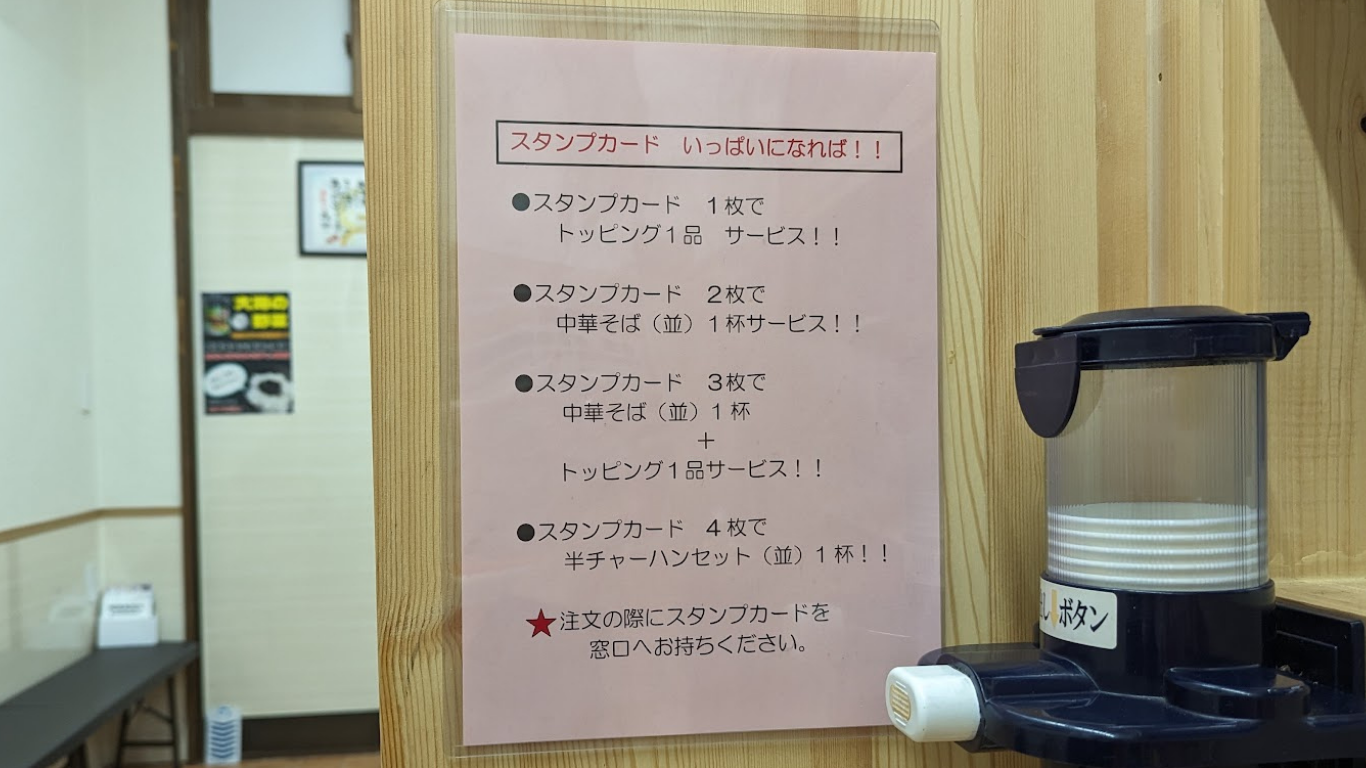 スタンプカード　いっぱいになれば！！
●スタンプカード　１枚で
トッピング１品　サービス！！
●スタンプカード　２枚で
中華そば（並）１杯サービス！！
●スタンプカード　３枚で
中華そば（並）１杯
＋
トッピング１品サービス！！
●スタンプカード　４枚で
半チャーハンセット（並）１杯！！
★注文の際にスタンプカードを
窓口へお持ちください。
ボタン